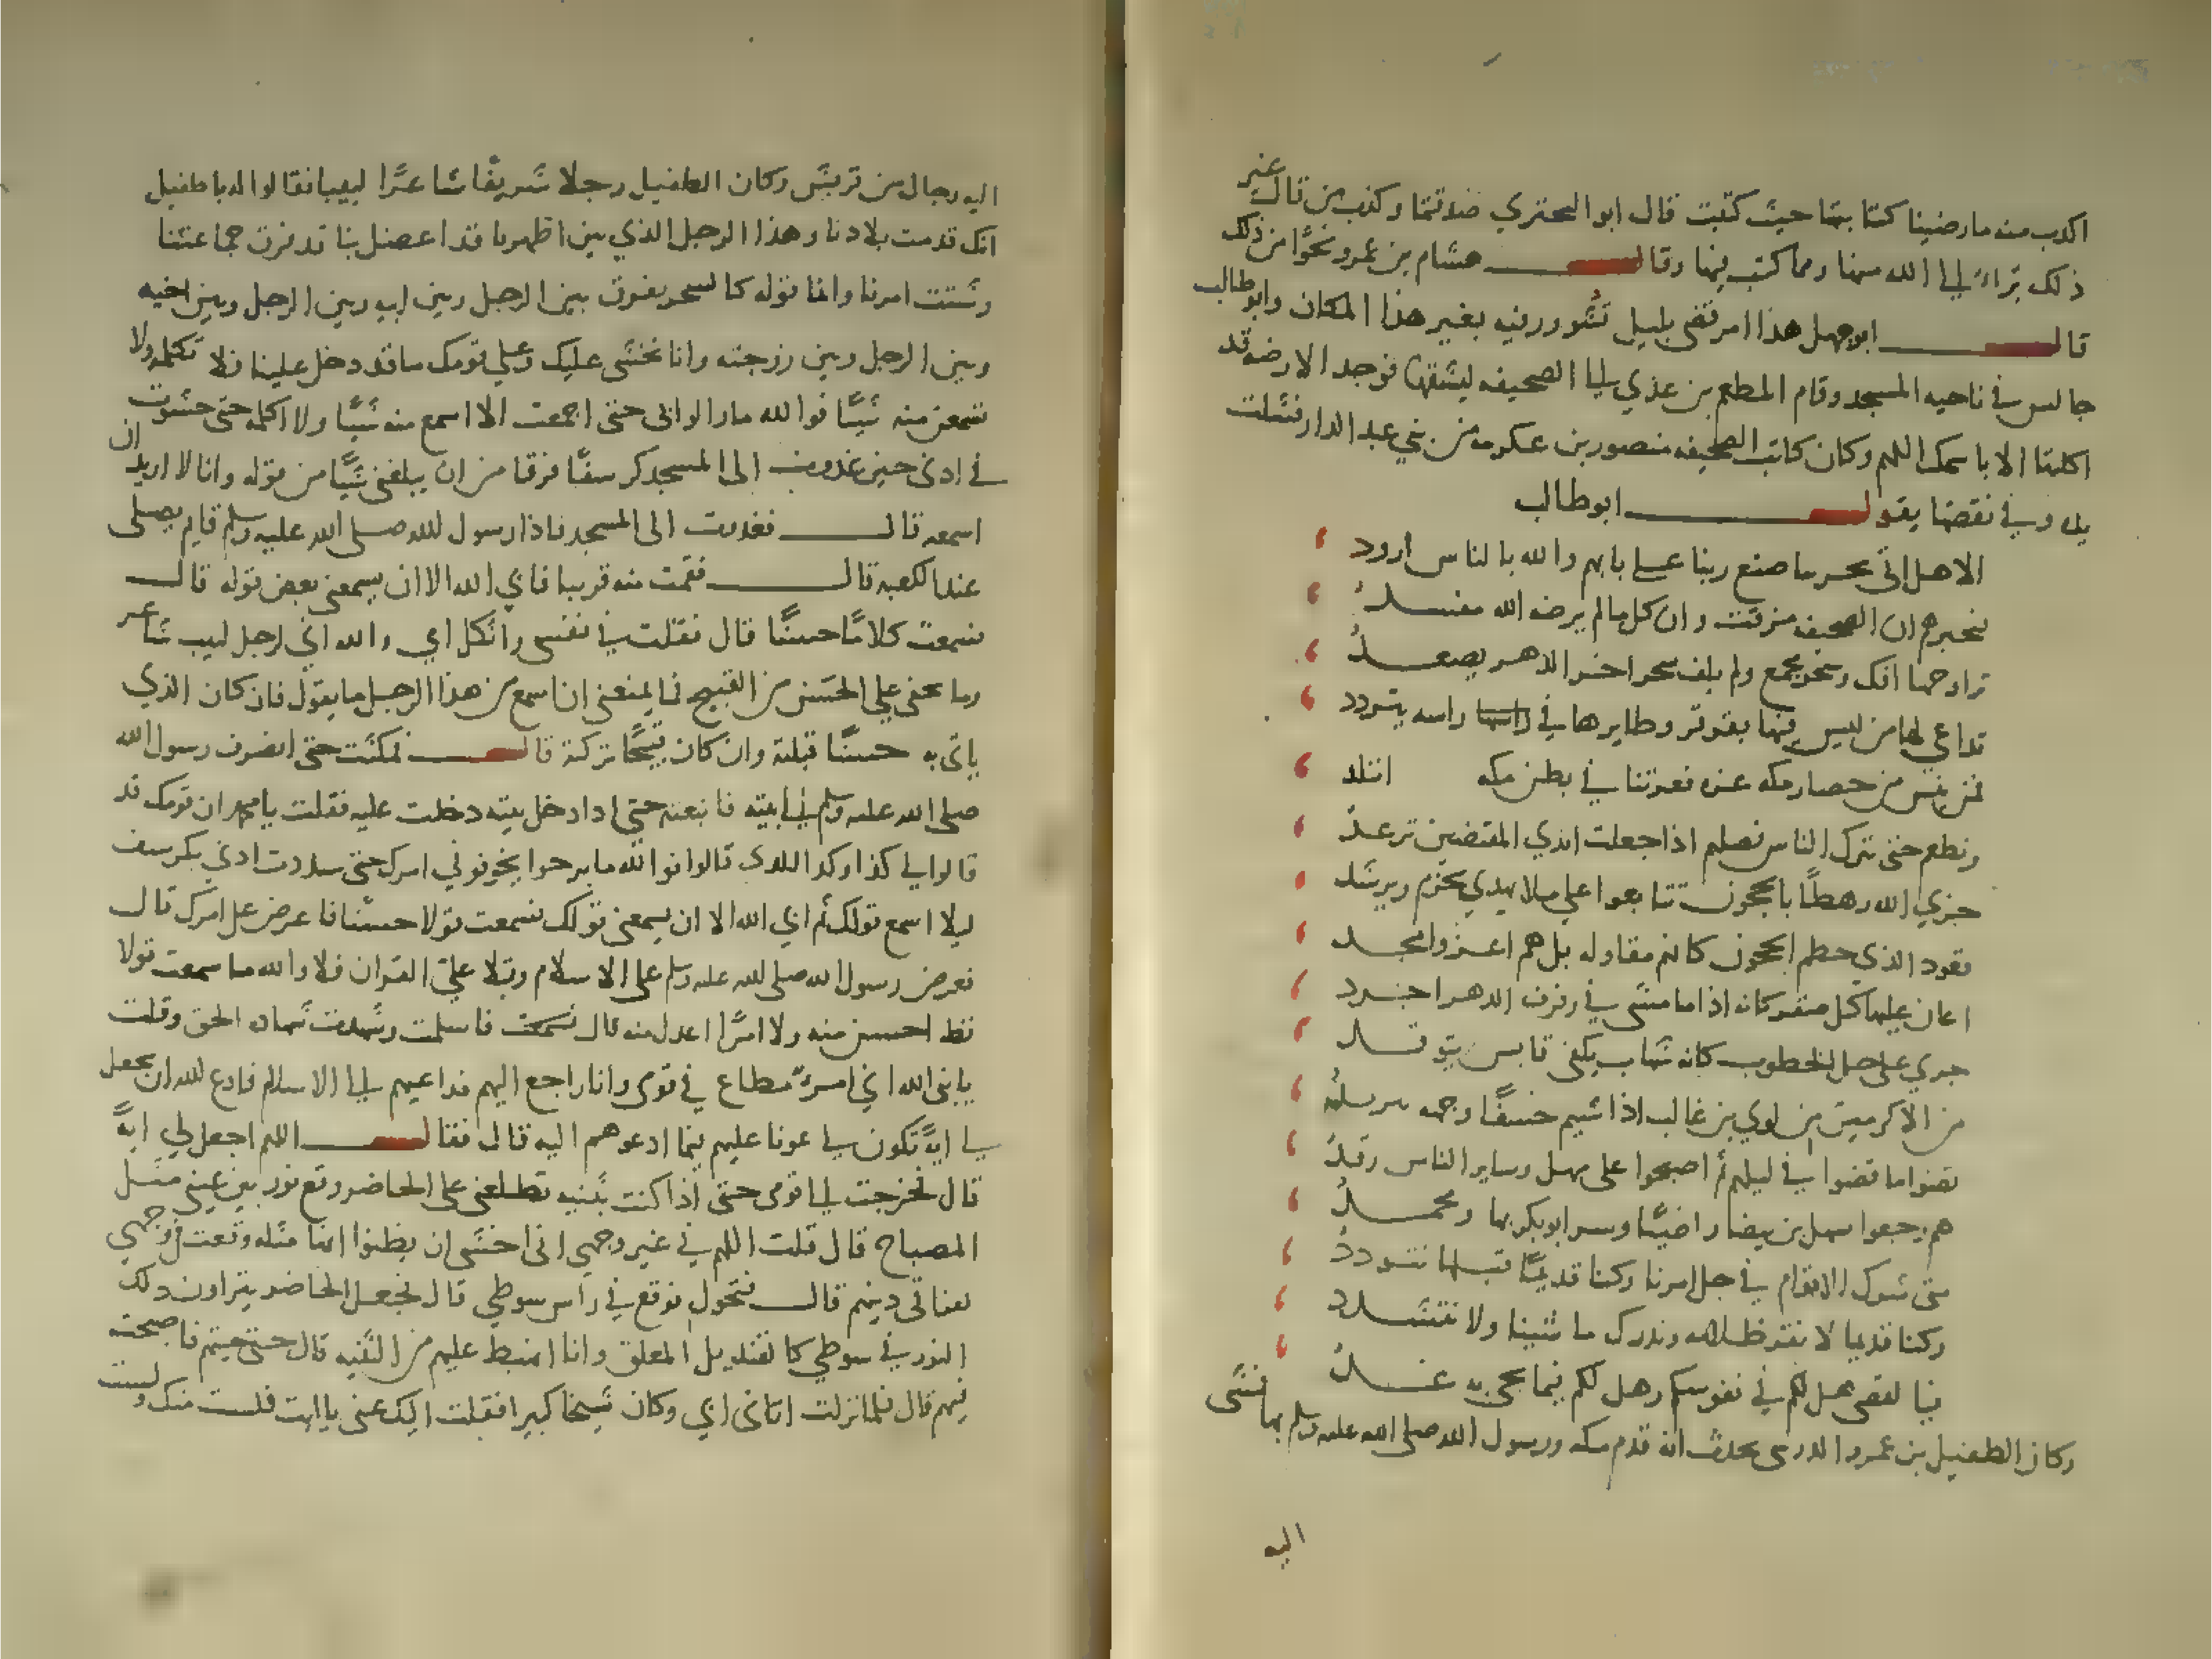 اكذب منه ما رضينا كتابتها حيث كتبت قال ابو البحتري صدقتما وكذب من قال غير
ذلك نبرا الى الله منها ومما كتب فيها وقال هشام بن عمرو نحوًا من ذلك
قال ابوجهل هذا امر قضي بليل تشوور فيه بغير هذا المكان وابو طالب
جالس في ناحيه المسجد وقام المطعم بن عدي الى الصحيفه ليشقها فوجد الارضه قد
اكلتها الا باسمك اللهم وكان كاتب الصحيفه منصور بن عكرمه من بني عبد الدار فشلت
يده وفي نقضها يقول ابوطالب
الا هل اتى بحرينا صنع ربنا على نايهم والله بالناس ارود
فيخبرهم ان الصحيفه مزقت وان كل ما لم يرضه الله مفسد
تراوحها افك وسحر مجمع ولم يلف سحر اخر الدهر يصعد
تداعى لها من ليس فيها بقرقر وطايرها في راسه يتردد
فمن ينش من حضار مكه عزه فعزتنا في بطن مكه اتلد
ونطعم حتى يترك الناس فضلهم اذا جعلت ايدي المفيضين ترعد
جزي الله رهطًا بالحجون تتابعوا على ملا يهدي بحزم ويرشد
قعود الذي حطم الحجون كانهم مقاوله بل هم اعز وامجد
اعان عليها كل صقر كانه اذا ما مشى في رفرف الدهر اجرد
جري على جل الخطوب كانه شهاب بكفي قابس يتوقد
من الاكرمين من لوي بن غالب اذا سيم خسفًا وجهه يتربد
قضوا ما قضوا في ليلهم ثم اصبحوا على مهل وساير الناس رقد
هم رجعوا سهل بن بيضا راضيًا وسر ابو بكر بها ومحمد
متى شرك الاقوام في جل امرنا وكنا قديمًا قبلها نتودد
وكنا قديما لا نقر ظلامه وندرك ما شينا ولا نتشدد
فيا لقصي هل لكم في نفوسكم وهل لكم فيما يجي به غد
وكان الطفيل بن عمرو الدوسي يحدث انه قدم مكه ورسول الله صلى الله عليه وسلم بها فمشى
اليه
اليه رجال من قريش وكان الطفيل رجلا شريفًا شاعرًا لبيبا فقالوا له يا طفيل
انك قدمت بلادنا وهذا الرجل الذي بين اظهرنا قد اعضل بنا قد فرق جماعتنا
وشتت امرنا وانما قوله كالسحر يفرق بين الرجل وبين ابيه وبين الرجل وبين اخيه
وبين الرجل وبين زوجته وانا نخشى عليك وعلى قومك ما قد دخل علينا فلا تكلمه ولا
تسمعن منه شيًا فوالله ما زالوا بي حتى اجمعت الا اسمع منه شيًا ولا اكلمه حتى حشوت
في اذني حين غدوت الى المسجد كرسفًا فرقا من ان يبلغني شيًا من قوله وانا لا اريد ان
اسمعه قال فغدوت الى المسجد فاذا رسول الله صلى الله عليه وسلم قايم يصلى
عند الكعبه قال فقمت منه قريبا فابي الله الا ان يسمعني بعض قوله قال
فسمعت كلامًا حسنًا قال فقلت في نفسي واثكل امي والله اني لرجل لبيب شاعر
وما يخفى علي الحسن من القبيح فما يمنعني ان اسمع من هذا الرجل ما يقول فان كان الذي
ياتي به حسنًا قبلته وان كان قبيحًا تركته قال فمكثت حتى انصرف رسول الله
صلى الله عليه وسلم الى بيته فاتبعته حتى اذا دخل بيته دخلت عليه فقلت يا محمد ان قومك قد
قالوا لي كذا وكذا للذي قالوا فوالله ما برحوا يخوفوني امرك حتى سددت اذني بكرسف
ليلا اسمع قولك ثم ابي الله الا ان يسمعني قولك فسمعت قولا حسنًا فاعرض علي امرك قال
فعرض رسول الله صلى الله عليه وسلم على الاسلام وتلا علي القران فلا والله ما سمعت قولا
قط احسن منه ولا امرًا اعدل منه قال فاسلمت وشهدت شهاده الحق وقلت
يا نبي الله اني امرؤ مطاع في قومي وانا راجع اليهم فداعيهم الى الاسلام فادع الله ان يجعل
لي ايةً تكون لي عونا عليهم فيما ادعوهم اليه قال فقال اللهم اجعل لي ايةً
قال فخرجت الى قومي حتى اذا كنت بثنيه تطلعني على الحاضر وقع نور بين عيني مثل
المصباح قال قلت اللهم في غير وجهي اني اخشى ان يظنوا انها مثله وقعت في وجهي
لفراقي دينهم قال فتحول فوقع في راس سوطي قال فجعل الحاضر يتراون ذلك
النور في سوطي كالقنديل المعلق وانا اهبط عليهم من الثنيه قال حتى جيتهم فاصبحت
فيهم قال فلما نزلت اتاني ابي وكان شيخا كبيرا فقلت اليك عني يا ابت فلست منك ولست